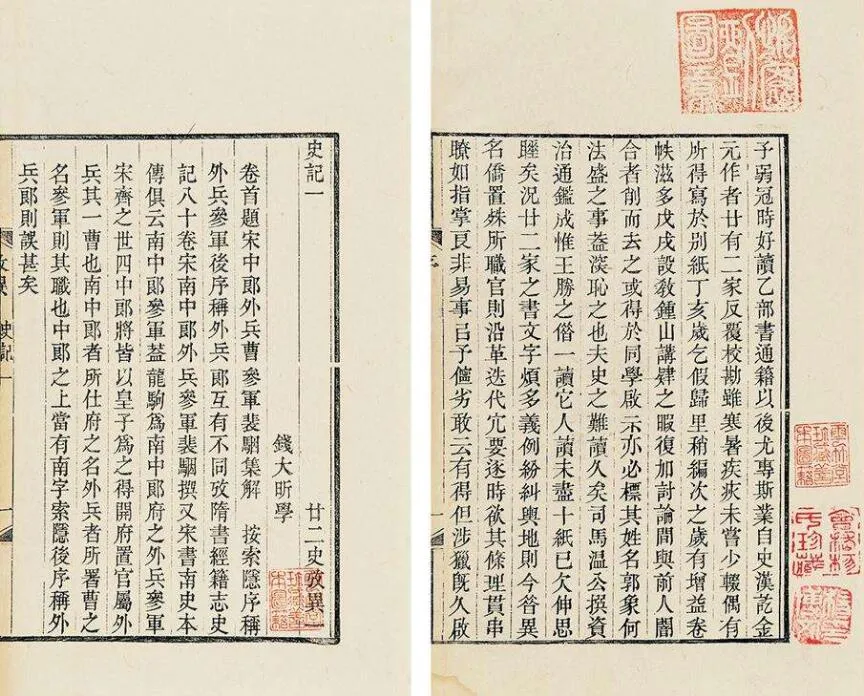 予弱冠時好讀乙部書通籍以後尤專斯業自史漢訖金
元作者廿有二家反覆校勘雖寒暑疾疢未嘗少輟偶有
所得寫於別紙丁亥歲乞假歸里稍編次之歲有增益卷
帙滋多戊戌設敎鍾山講肄之暇復加討論間與前人闇
合者削而去之或得於同學啟示亦必標其姓名郭象何
法盛之事葢深恥之也夫史之難讀久矣司馬温公撰資
治通鑑成惟王勝之借一讀它人讀未盡十紙已欠伸思
睡矣況廿二家之書文字煩多義例紛糾輿地則今昔異
名僑置殊所職官則沿革迭代宂要逐時欲其條理貫串
瞭如指掌良非易事以予儜劣敢云有得但涉獵旣久啟
史記一　廿二史攷異一
錢大昕學
卷首題宋中郞外兵曹參軍裴駰集解　按索隱序稱
外兵參軍後序稱外兵郞互有不同攷隋書經籍志史
記八十卷宋南中郞外兵參軍裴駰撰又宋書南史本
傳俱云南中郞參軍葢龍駒爲南中郞府之外兵參軍
宋齊之世四中郞將皆以皇子爲之得開府置官屬外
兵其一曹也南中郞者所仕府之名外兵者所署曹之
名參軍則其職也中郞之上當有南字索隱後序稱外
兵郞則誤甚矣
史記一